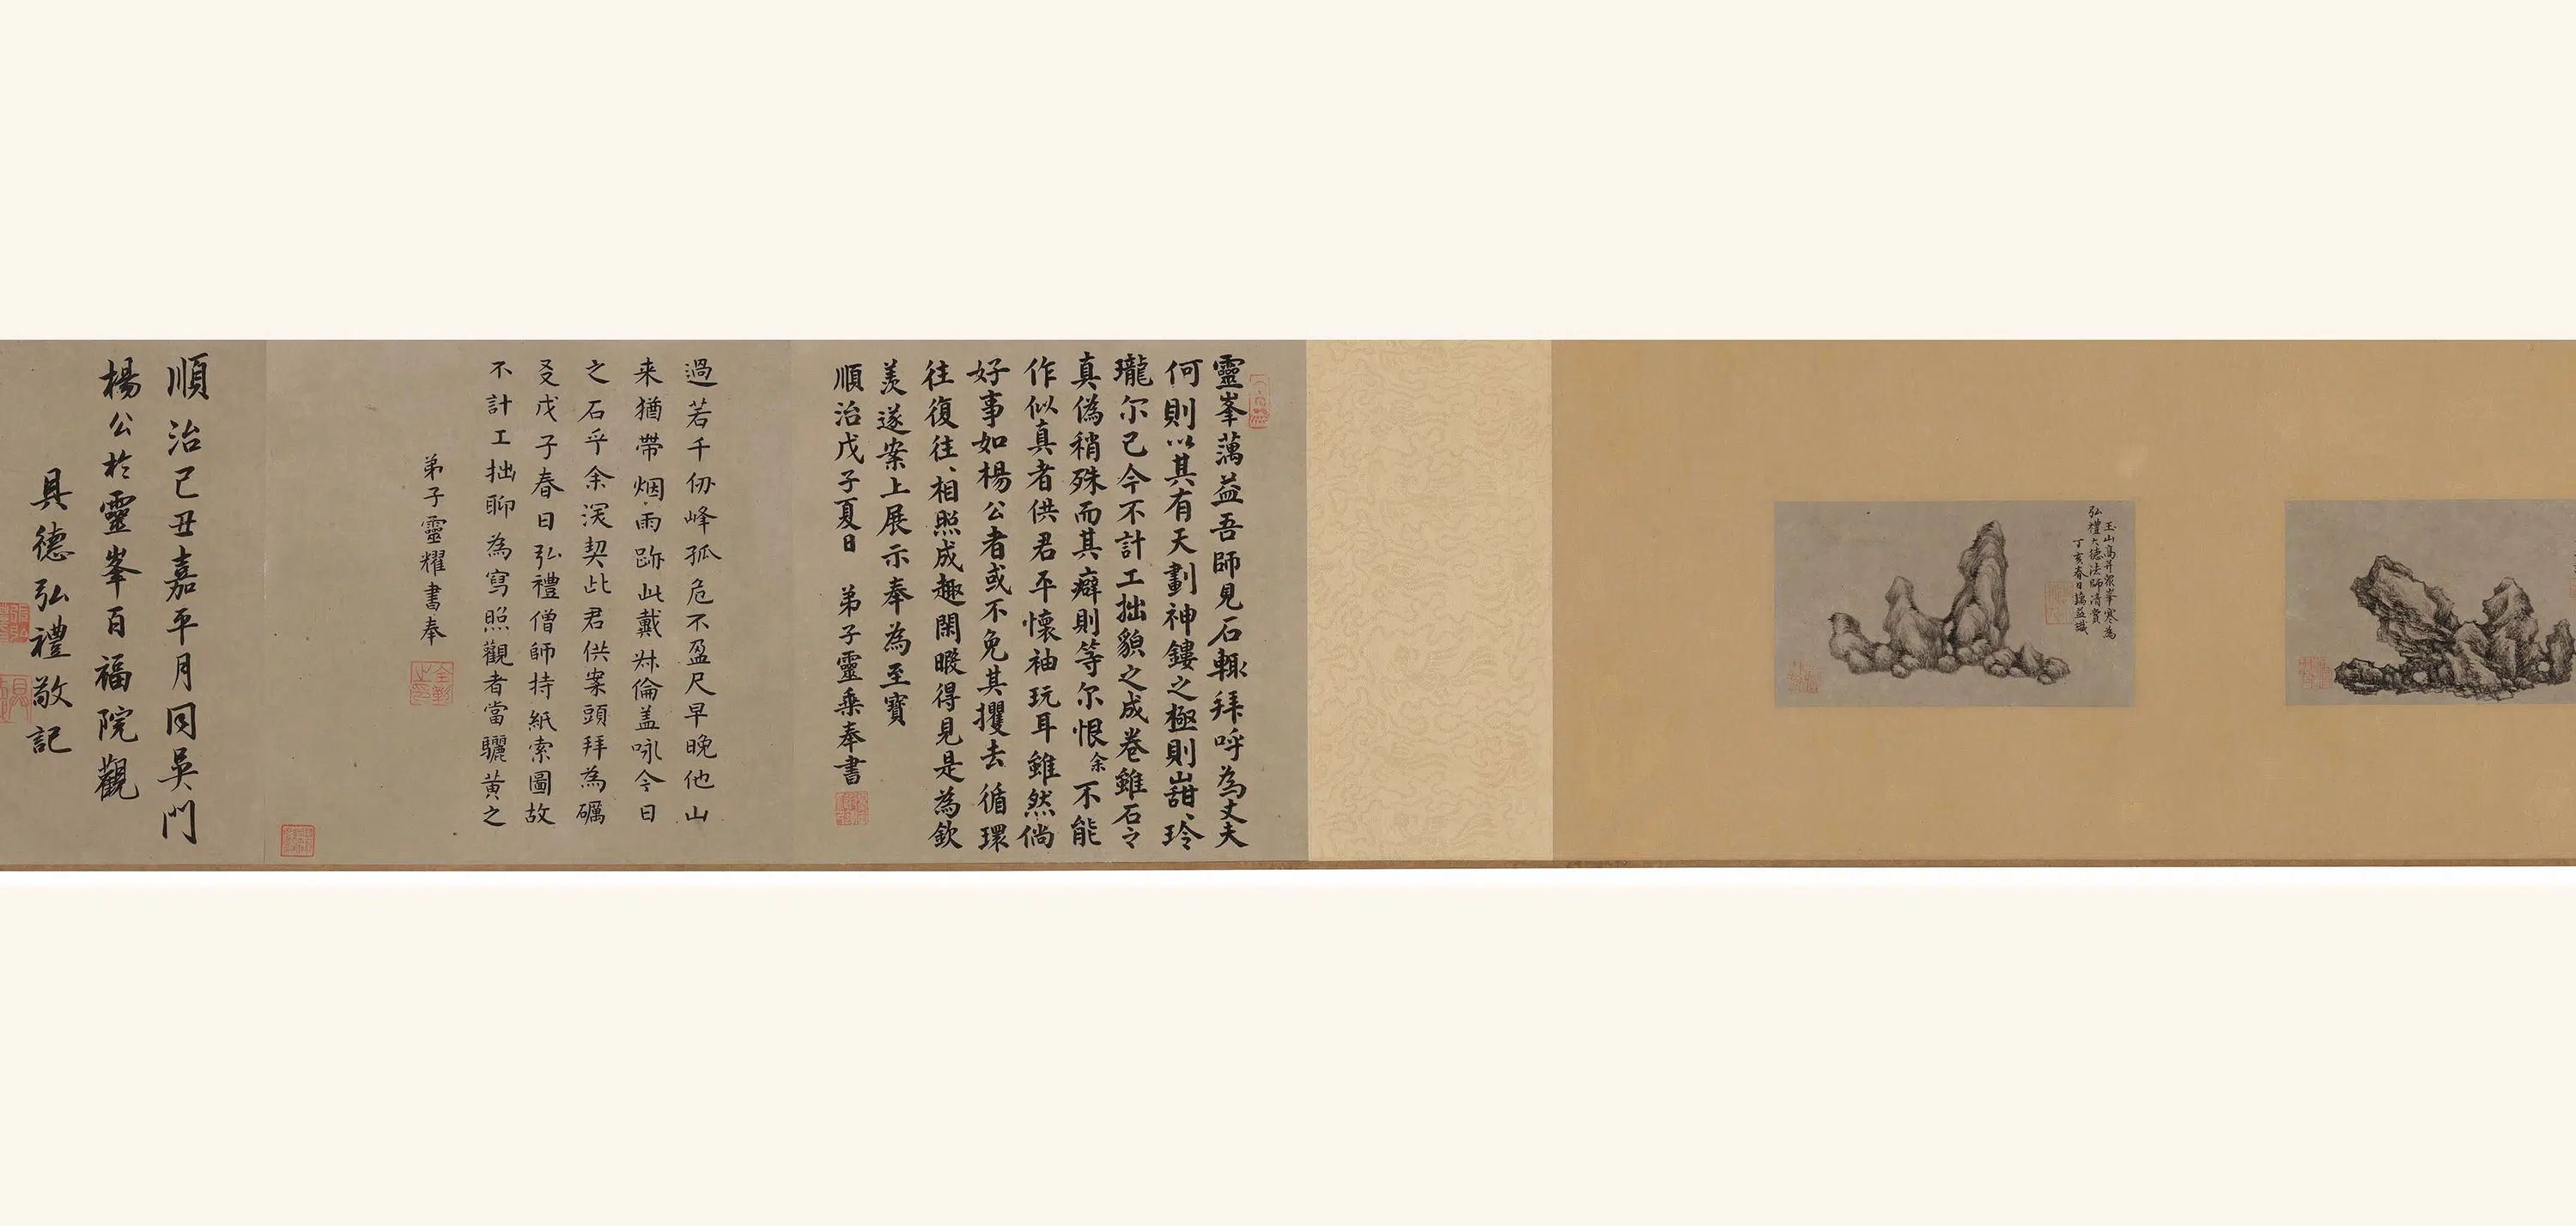 玉山高并眾峯寒為
弘禮大德法師清賞
丁亥春日蕅益識
靈峯蕅益吾師見石輒拜呼為丈夫
何則以其有天劃神鏤之極則嵌玲
瓏尔已今不計工拙貌之成卷雖石之
真偽稍殊而其癖則等尔恨余不能
作似真者供君平懷袖玩耳雖然倘
好事如楊公者或不免其攫去循環
往復往、相照成趣閑暇得見是為欽
羡遂案上展示奉為至寶
順治戊子夏日 弟子靈乘奉書
過若千仞峰孤危不盈尺早晚他山
来猶帶烟雨跡此戴叔倫盖咏今日
之石乎余深契此君供案頭拜為礪
爻戊子春日弘禮僧師持紙索圖故
不計工拙聊為寫照觀者當驪黄之
弟子靈耀書奉
順治己丑嘉平月同吳門
楊公於靈峯百福院觀
具德弘禮敬記